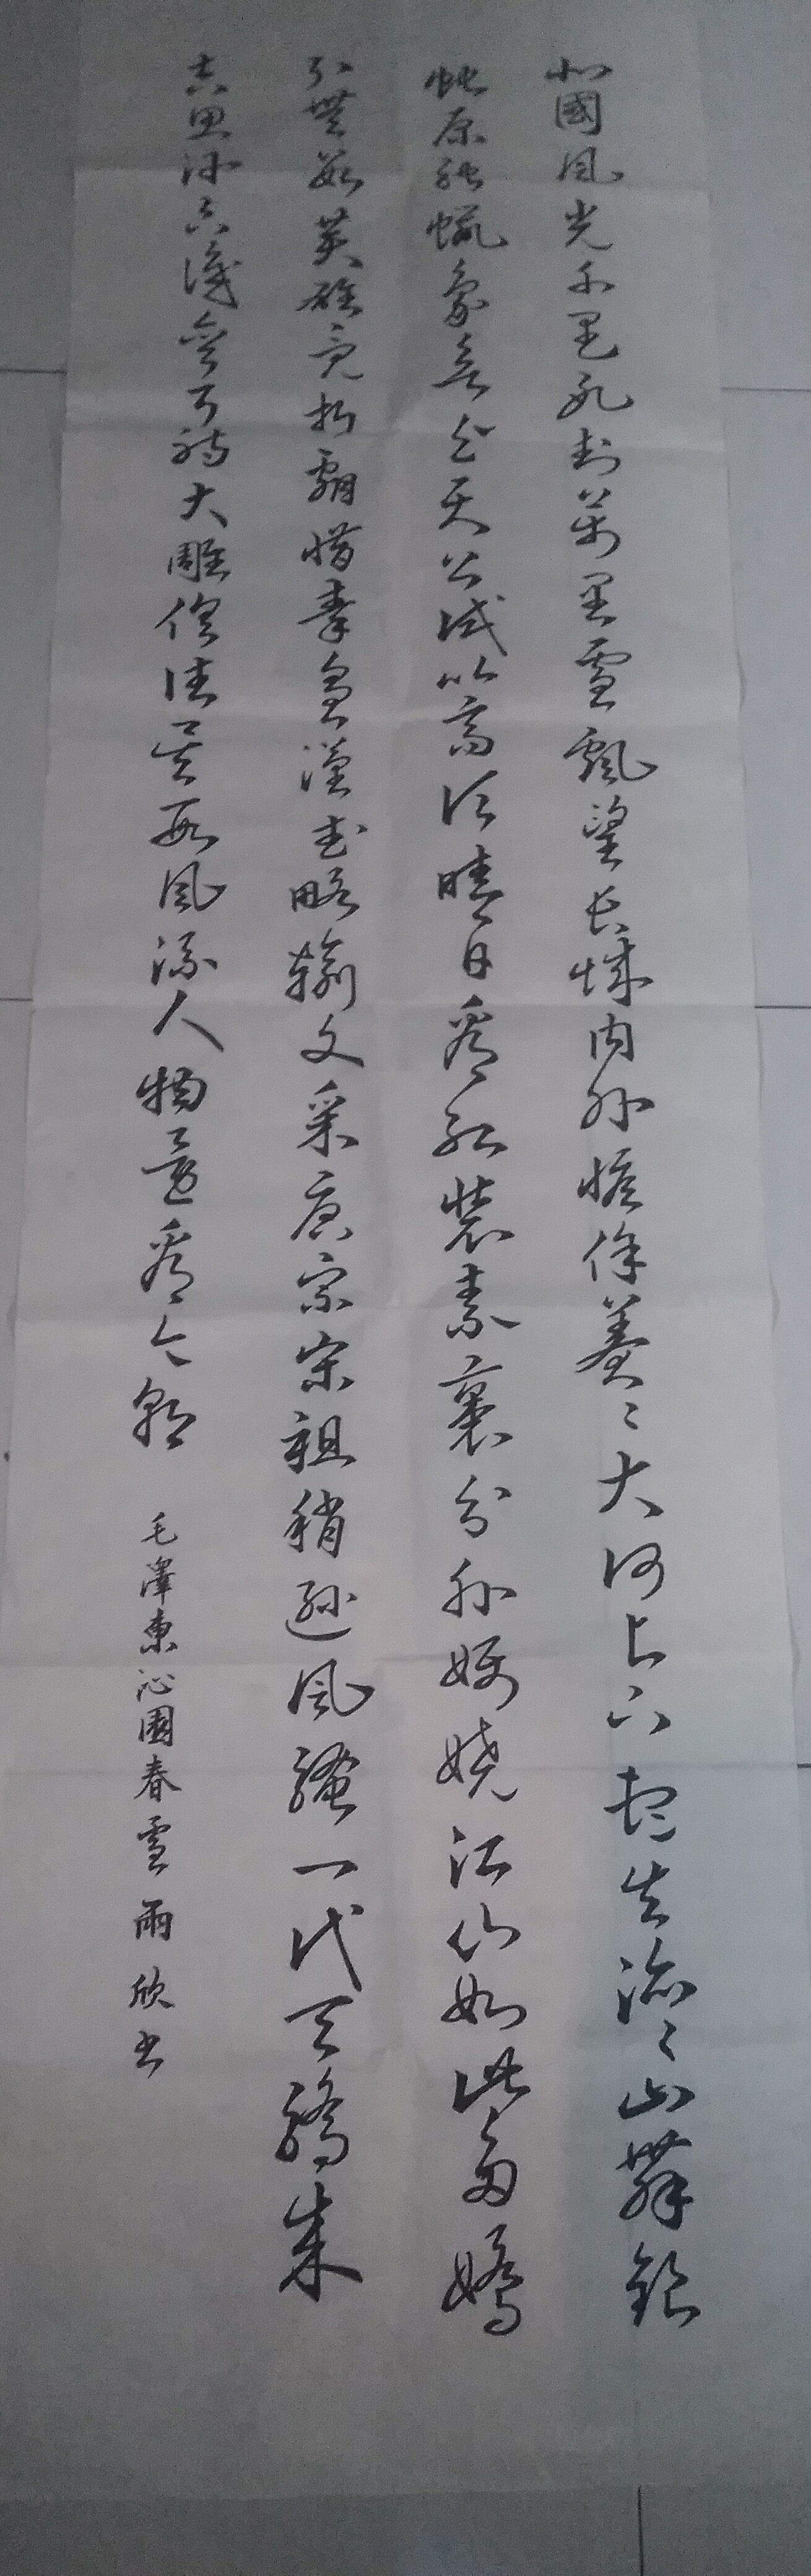 北國風光千里冰封萬里雪飄望長城内外惟餘莽〻大河上下頓失滔〻山舞銀
蛇原馳蠟象欲与天公試比高須晴日看紅裝素裹分外妖嬈江山如此多嬌
引無數英雄競折腰惜秦皇漢武略輸文采唐宗宋祖稍遜風騷一代天驕成
吉思汗只識彎弓射大雕俱往矣數風流人物還看今朝
毛澤東沁園春雪雨欣書